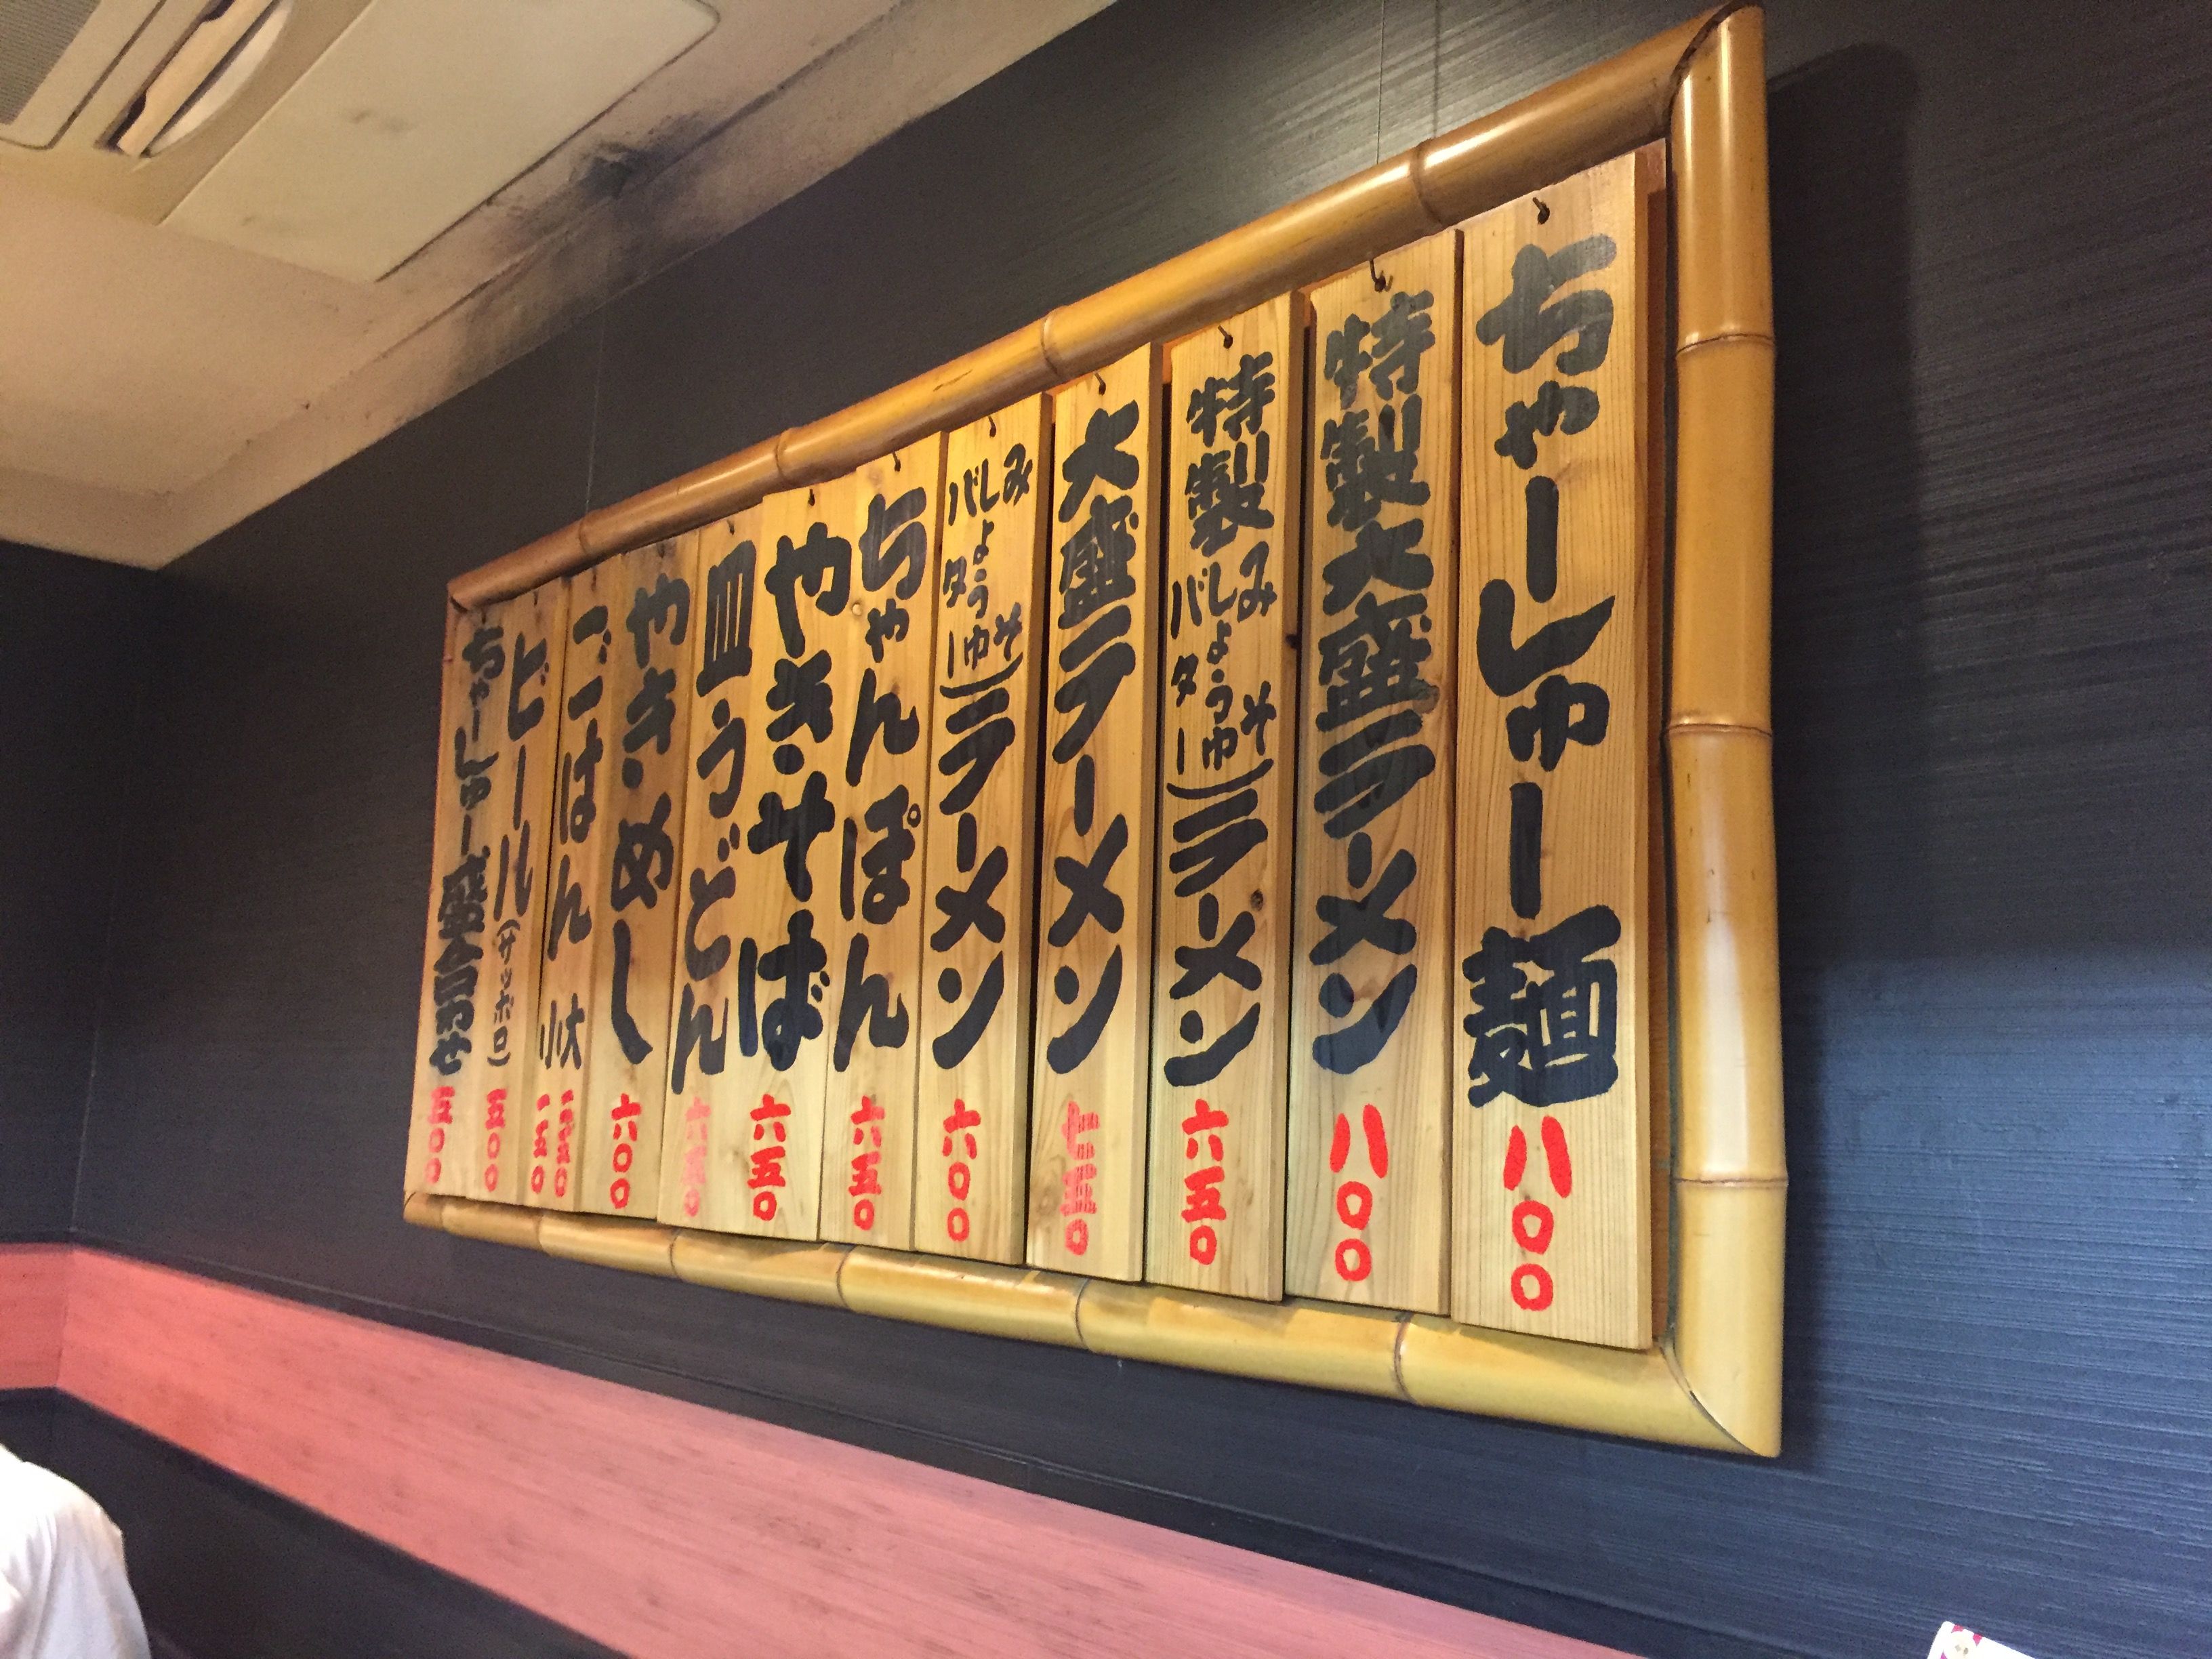 ちゃーしゅー麺 八〇〇
特製大盛ラーメン 八〇〇
特製 みそ しょうゆ バター ラーメン 六五〇
大盛ラーメン 七五〇
みそ しょうゆ バター ラーメン 六〇〇
ちゃんぽん 六五〇
やきそば 六五〇
皿うどん 六五〇
やきめし 六〇〇
ごはん 大 小 一五〇
ビール(サッポロ) 五〇〇
ちゃーしゅー盛合わせ 五〇〇